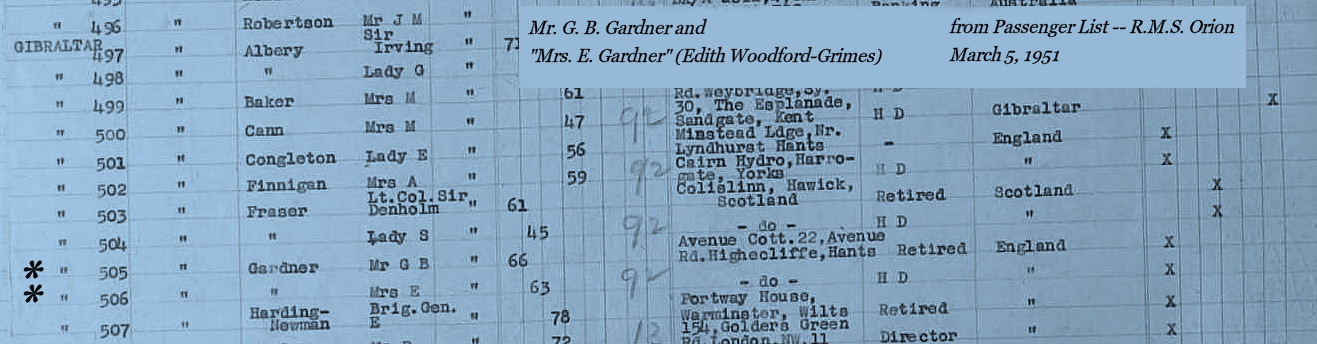 Mr. G. B. Gardner and
"Mrs. E. Gardner" (Edith Woodford-Grimes)
from Passenger List -- R.M.S. Orion
March 5, 1951
" 496 " Robertson Mr J M "
GIBRALTAR 497 " Albery Sir Irving "
" 498 " " Lady G "
Rd. Weybridge, Sy.
" 499 " Baker Mrs M " 61 30, The Esplanade, H D Gibraltar X
Sandgate, Kent
" 500 " Cann Mrs M " 47 92 Minstead Ldge, Nr. - England X
Lyndhurst Hants
" 501 " Congleton Lady E " 56 Cairn Hydro, Harro- H D " X
gate, Yorks
" 502 " Finnigan Mrs A " 59 92 Colislinn, Hawick, Retired Scotland X
Scotland
" 503 " Fraser Lt.Col.Sir Denholm " 61 - do - H D " X
" 504 " " Lady S " 45 92 Avenue Cott. 22, Avenue
Rd. Highecliffe, Hants Retired England X
* " 505 " Gardner Mr G B " 66 - do - H D " X
* " 506 " " Mrs E " 63 92 Portway House, Retired " X
Warminster, Wilts
" 507 " Harding-Newman Brig.Gen. E " 78 154, Golders Green Director " X
Rd. London, NW.11